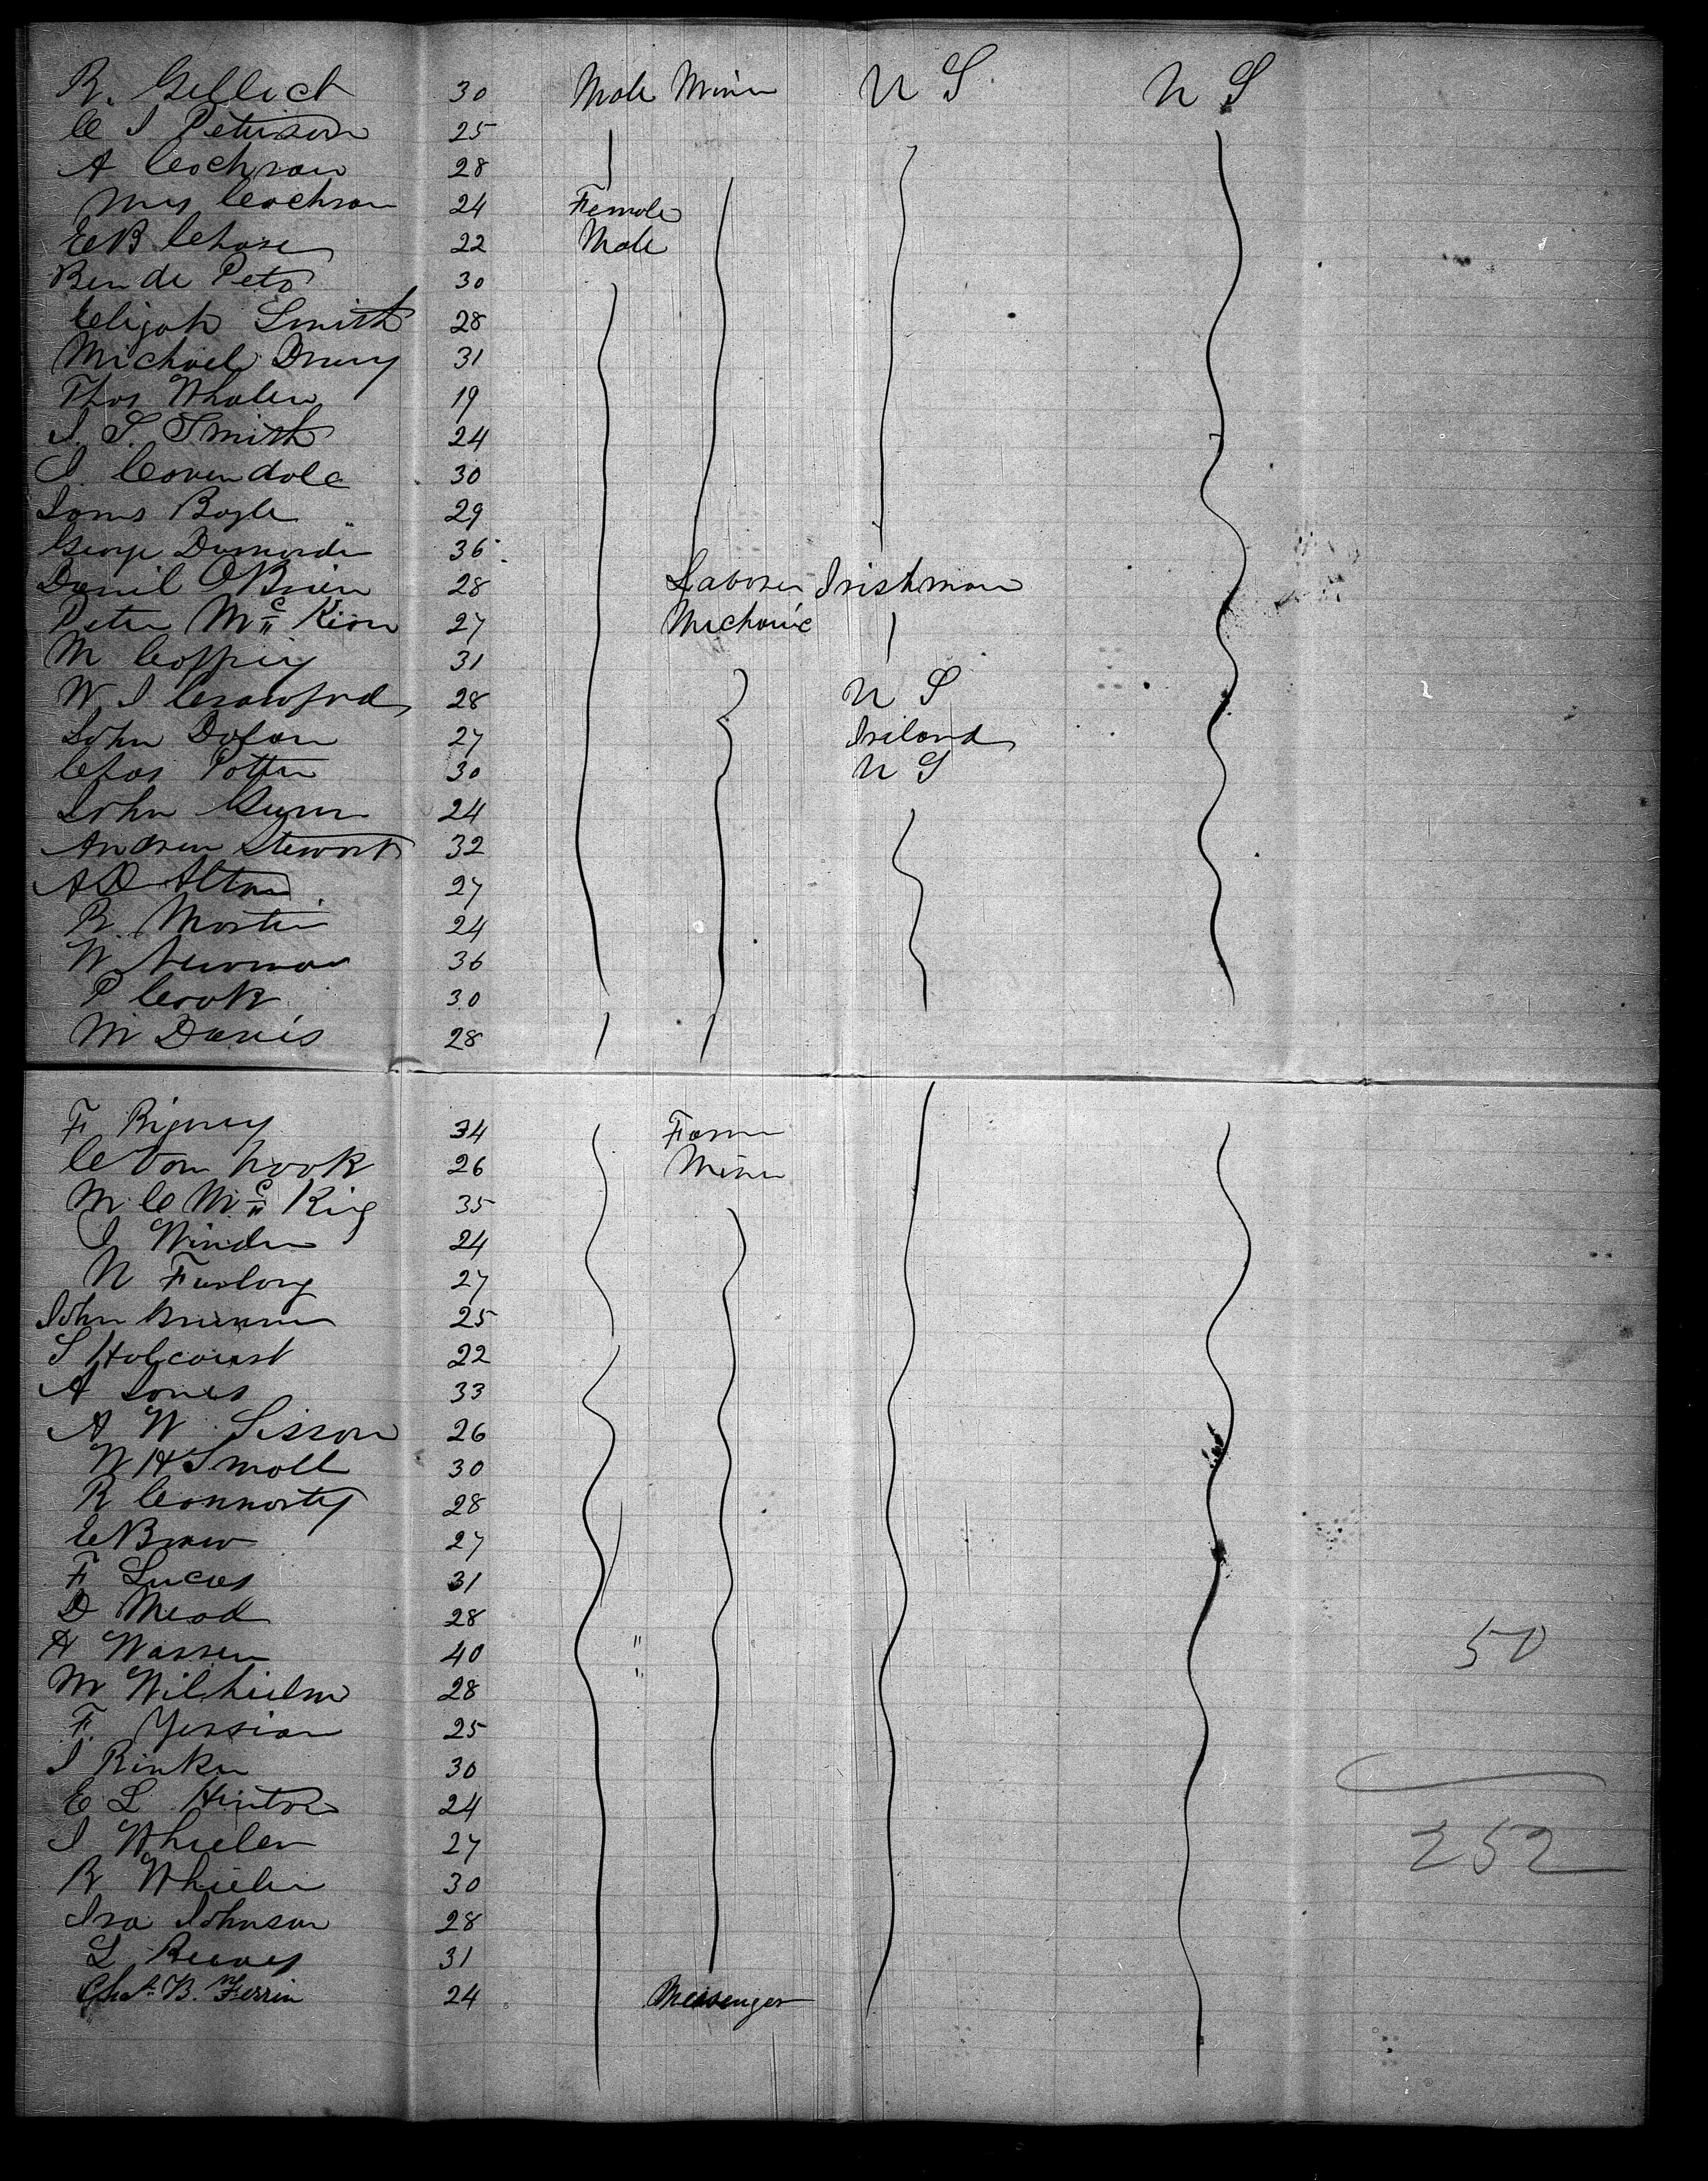 R. Gellick 30 Male Miner U S. U S
C J Peterson 25
A Cochran 28
Mrs Cochran 24 Female
E B Chase 22 Male
Ben de Peto 30
Elijah Smith 28
Michael Drury 31
Thos Whalen 19
J. S. Smith 24
J. Covendale 30
James Boyle 29
George Dumarden 36
Daniel OBrien 28 Laborer Irishman
Peter Mc Kion 27 Mechanic
M Coffrey 31
W J Crawford 28 U S
John Dolan 27 Ireland
Chas Potter 30 U S
John Gunn 24
Andrew Stewart 32
A D Alton 27
R. Martin 24
W. Newman 36
P Cook 30
M Davis 28
F Rigney 34 Farmer
C Van hook 26 Miner
M C Mc King 35
J Winder 24
N Furlong 27
John Brunner 25
S Holcourst 22
A Jones 33
A W. Sisson 26
W H Small 30
R Connorty 28
E Brow 27
F Lucas 31
D Mead 28
H Warren 40 "
M Wilhielm 28 "
F. Yession 25
J Rinker 30
E L Hinton 24
J Wheeler 27
R Wheeler 30
Ira Johnson 28
L Reeves 31
Chas. B. Ferrin 24 Messenger
50
252